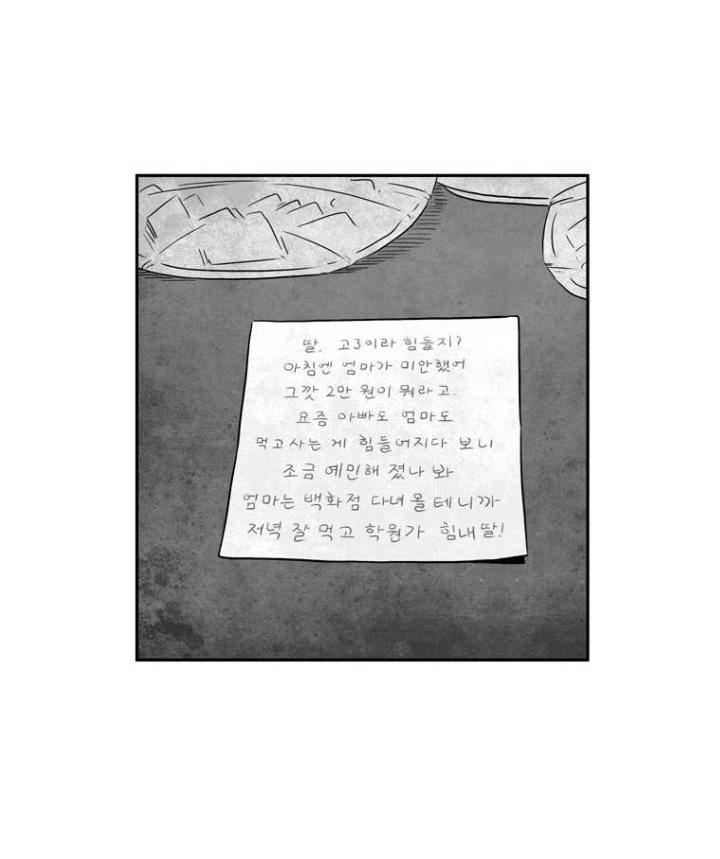 딸. 고3이라 힘들지?
아침엔 엄마가 미안했어
그깟 2만 원이 뭐라고.
요즘 아빠도 엄마도
먹고사는 게 힘들어지다 보니
조금 예민해 졌나 봐
엄마는 백화점 다녀올 테니까
저녁 잘 먹고 학원가 힘내딸!